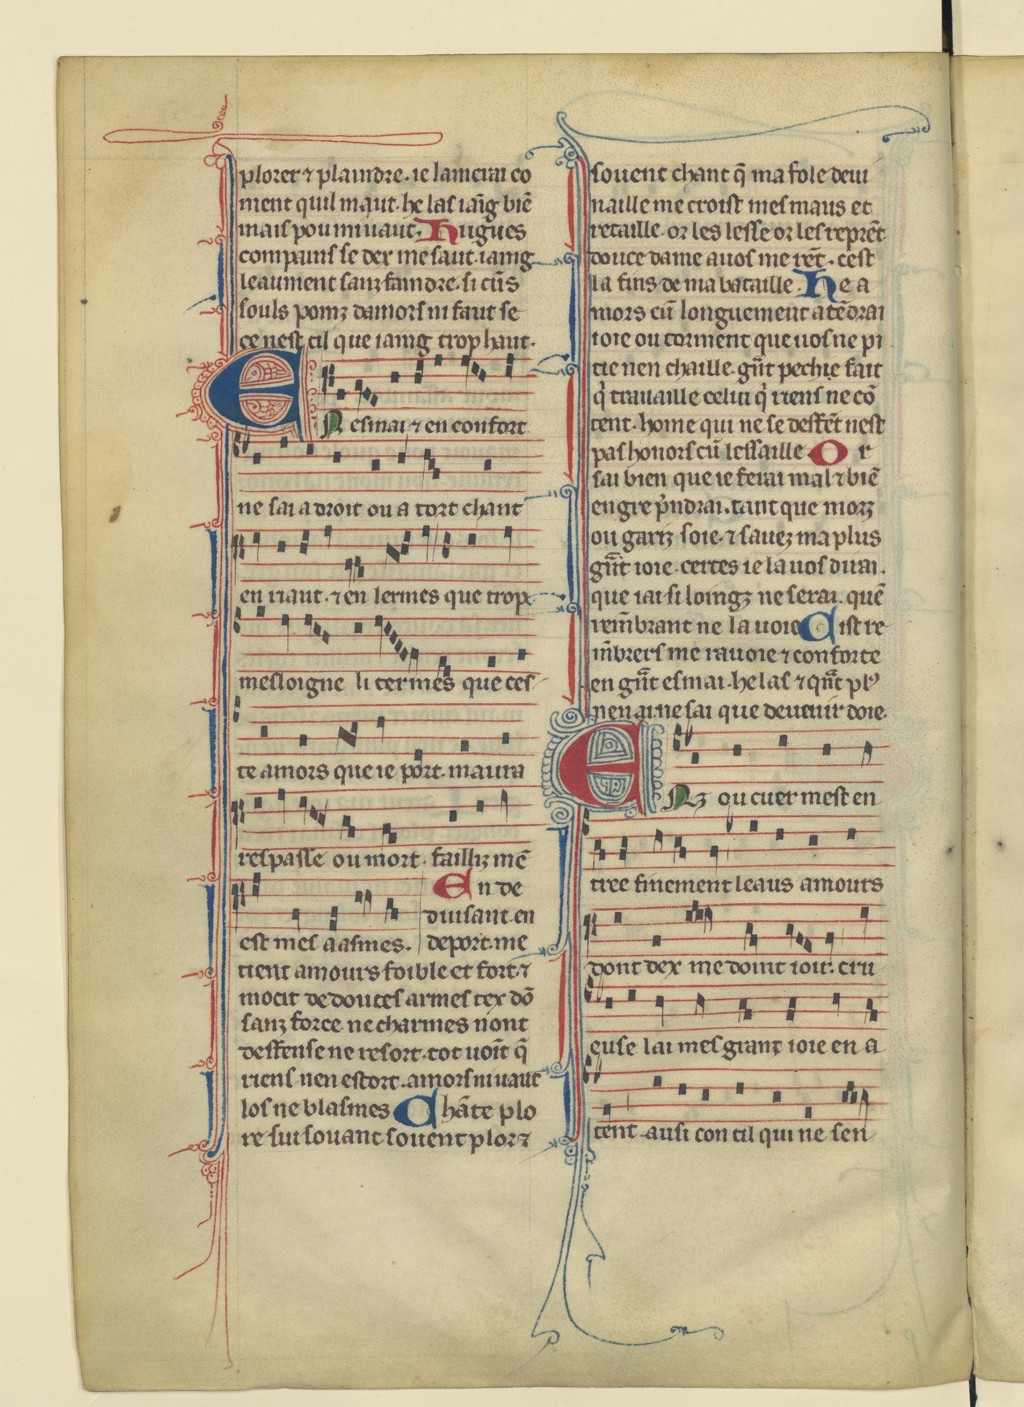 plorer ⁊ plaindre. ie lamerai co
ment quil maut. he las iaĩg biẽ
mais pou mi uaut. Hugues
compains se dex me saut. iaing
leaument sanz faindre. si cũs
souls pomz damors ni faut se
ce nest cil que iaing trop haut.
EN esmai ⁊ en confort
ne sai a droit ou a tort chant
en riant. ⁊ en lermes que trop
mesloigne li termes que ces
te amors que ie port. maura
respasse ou mort. failliz mẽ
est mes aasmes. En de
duisant. en
deport. me
tient amours foible et fort. ⁊
mocit de douces armes tex dõ
sanz force ne charmes nont
deffense ne resort. tot uoit q̃
riens nen estort. amors ni uaut
los ne blasmes Chãte plo
re sui souant souent plor ⁊
souent chant q̃ ma fole deui
naille me croist mes maus et
retaille. or les lesse or les reprẽt
douce dame a uos me rẽt. cest
la fins de ma bataille. He a
mors cũ longuement atẽdrai
ioie ou torment que uos ne pi
tie nen chaille. gñt pechie fait
q̓ trauaille celui q̓ riens ne cõ
tent. home qui ne se deffẽt nest
pas honors cũ lessaille Or
sai bien que ie ferai mal ⁊ biẽ
en gre p̓ndrai. tant que morz
ou gariz soie. ⁊ sauez ma plus
gñt ioie. certes ie la uos dirai.
que iai si loingz ne serai. quẽ
rem̃brant ne la uoie Cist re
m̃brers me rauoie ⁊ conforte
en gñt esmai. he las ⁊ qñt pl᷒
nen ai. ne sai que deuenir doie.
ENz ou cuer mest en
tree finement leaus amours
dont dex me doint ioir. cru
euse lai mes granz ioie en a
tent. ausi con cil qui ne sen